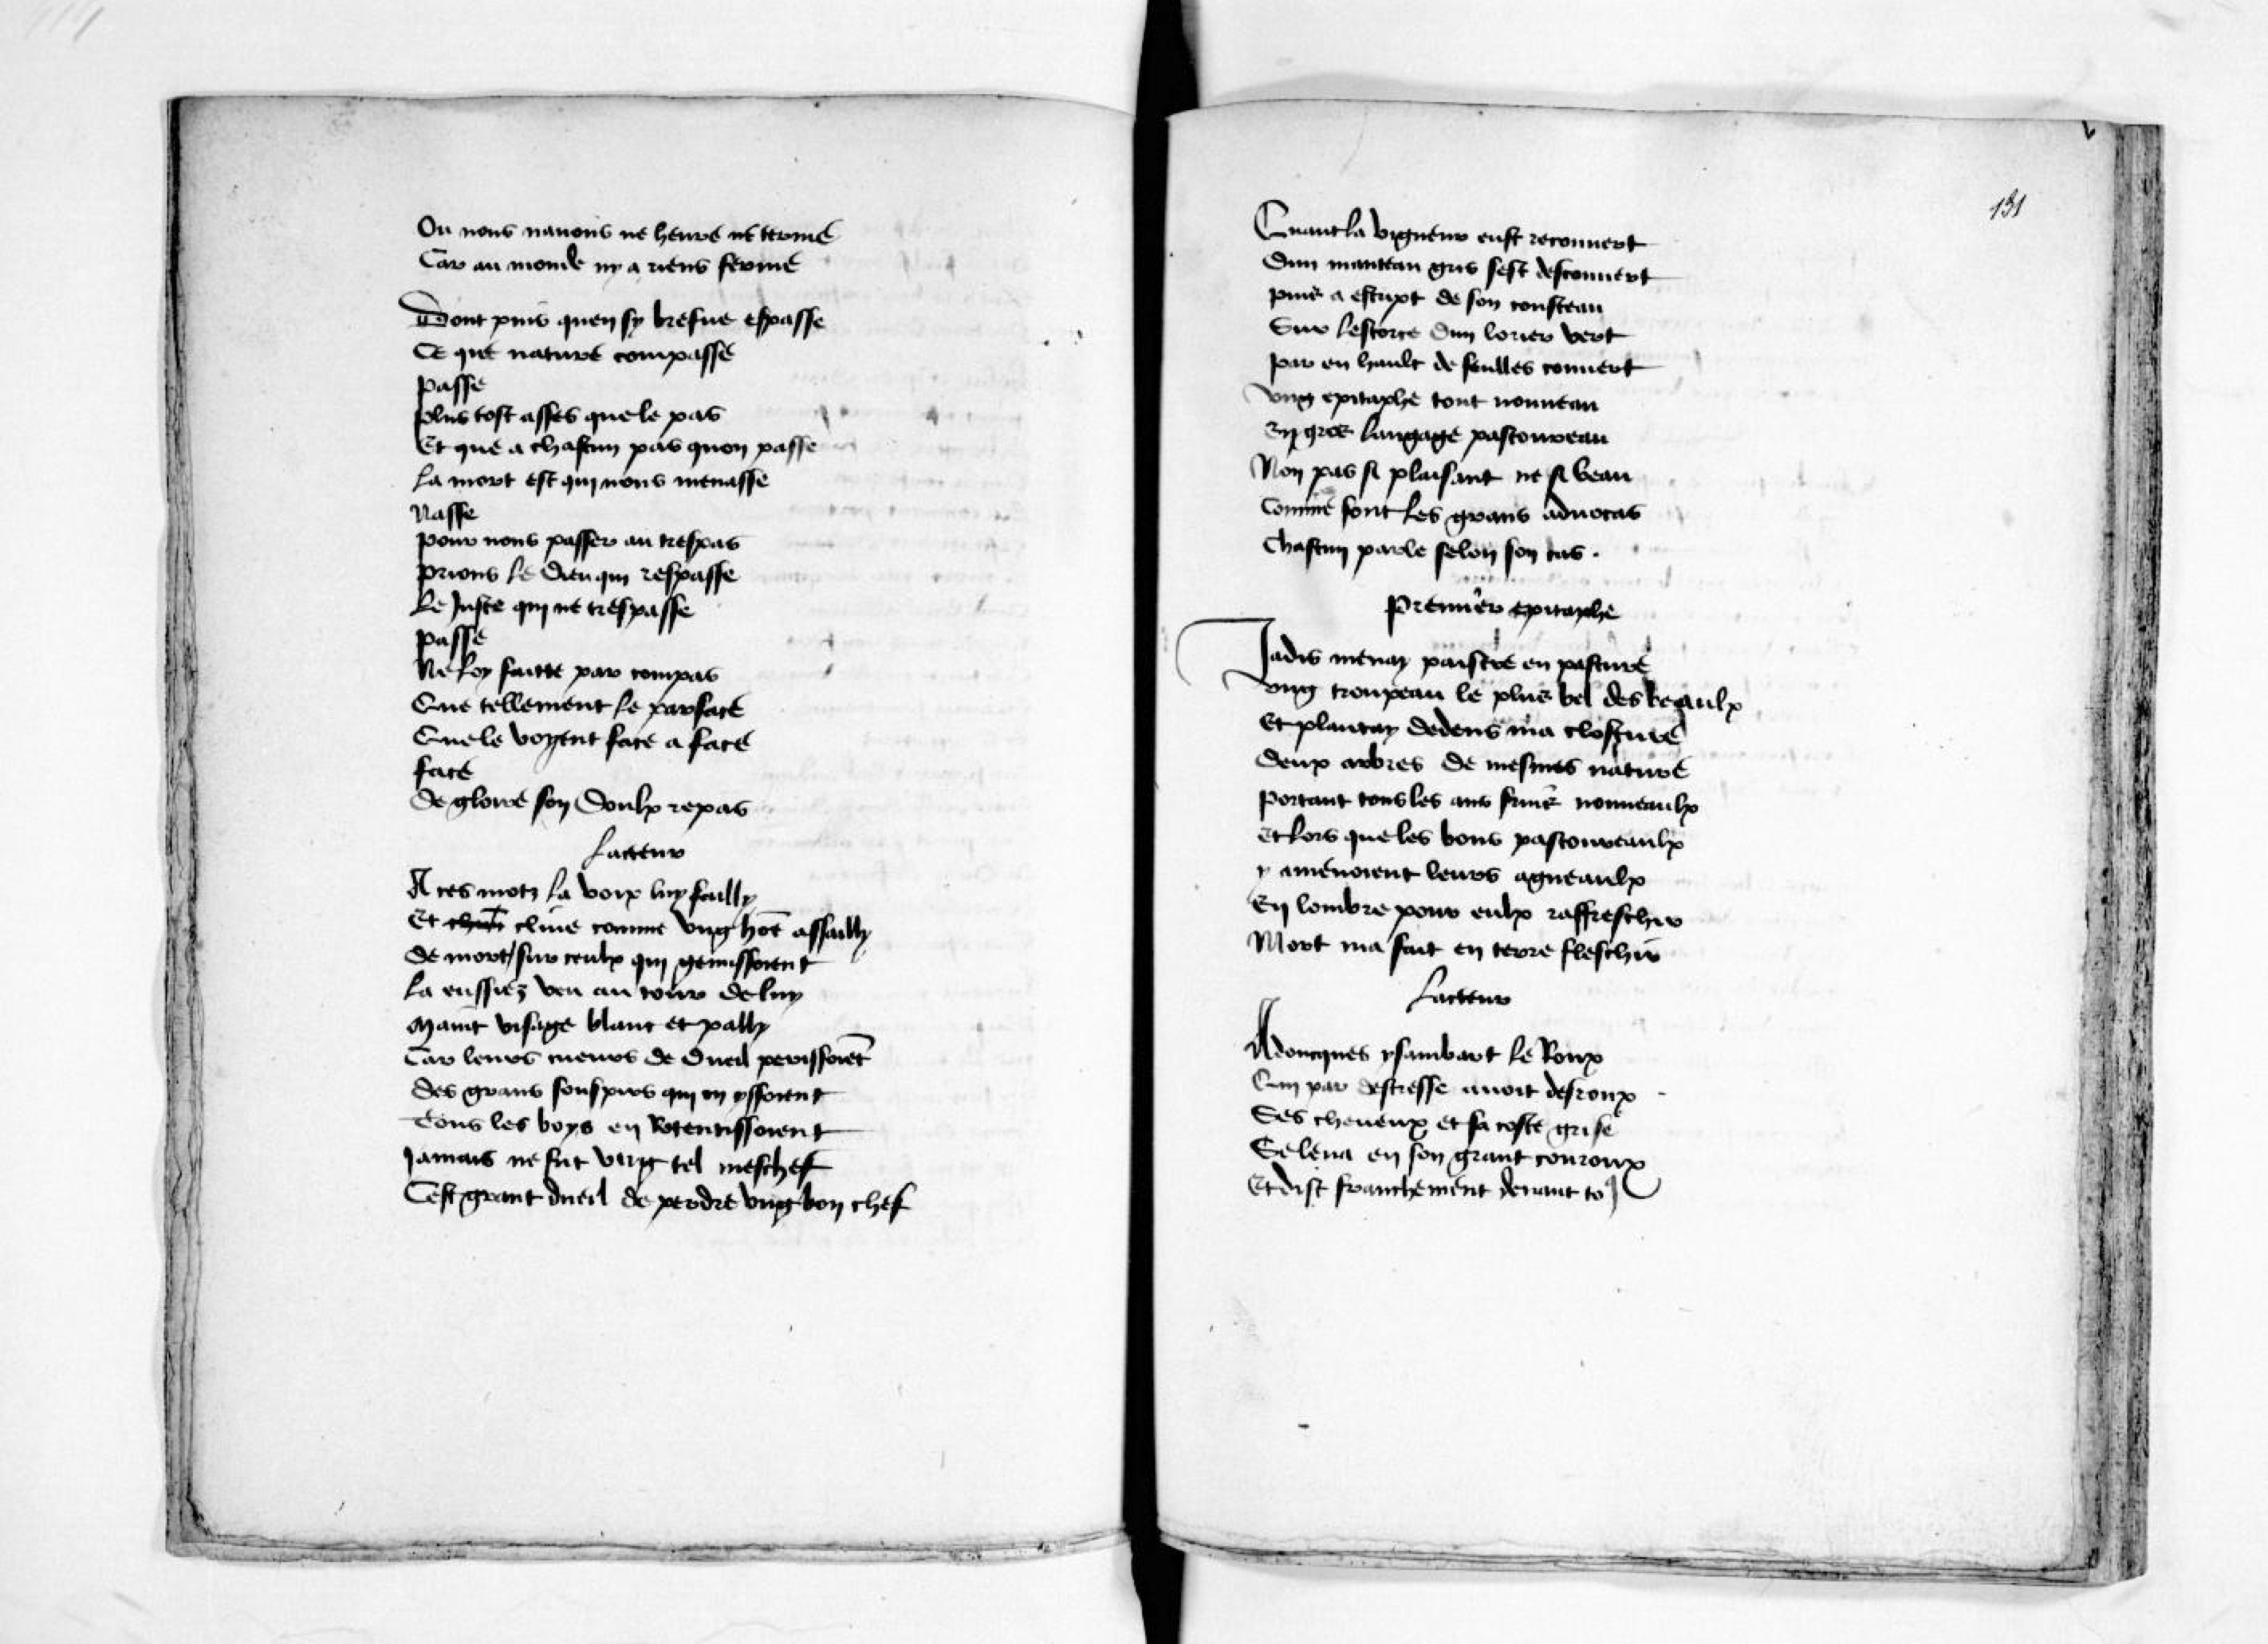 Ou nous nauons ne heure ne terme
Car au monde ny a riens ferme
Dont puis quen sy brefue espasse
Ce que nature compasse
passe
plus tost asses que le pas
Et que a chascun pas quon passe
la mort est qui nous menasse
Nasse
pour nous passer au trespas
prions le dieu qui respasse
le Juste qui ne trespasse
passe
Ne loy faitte par compas
Que tellement le parface
Que le voyent face a face
face
de gloire son doulx repas
lacteur
A ces motz la voix luy failly
Et cline comme vng hōe assailly
de mort/sur ceulx qui gemissoient
la eussiez veu au tour de luy
maint visage blanc et pally
Car leurs cueurs de dueil perissoiēt
des grans souspirs qui en yssoient
Tous les boys en Retentissoient
Jamais ne fut vng tel meschef
Cest grant dueil de perdre vng bon chef
131
Quant la vigueur eust recouuert
dun manteau gris sest descouuert
puis a escript de son cousteau
Sur lescorce dun lorier vert
par en hault de feulles couuert
vng epitaphe tout nouueau
En gros langage pastoureau
Non pas si plaisant ne si beau
comme font les grans aduocas
Chascun parle selon son cas .
premier epitaphe
Jadis menay paistre en pasture
vng troupeau le plus bel des beaulx
Et plantay dedens ma closture
deux arbres de mesmes nature
portant tous les ans fruis nouueaulx
Et lors que les bons pastoureaulx
y amenoient leurs agneaulx
En lombre pour eulx raffreschir
Mort ma fait en terre fleschir
lacteur
Adoncques ysambart le Roux
Qui par destresse auoit desroux
Ses cheueux et sa coste grise
Se leua en son grant couroux
Et dist franchement deuant toꝯ